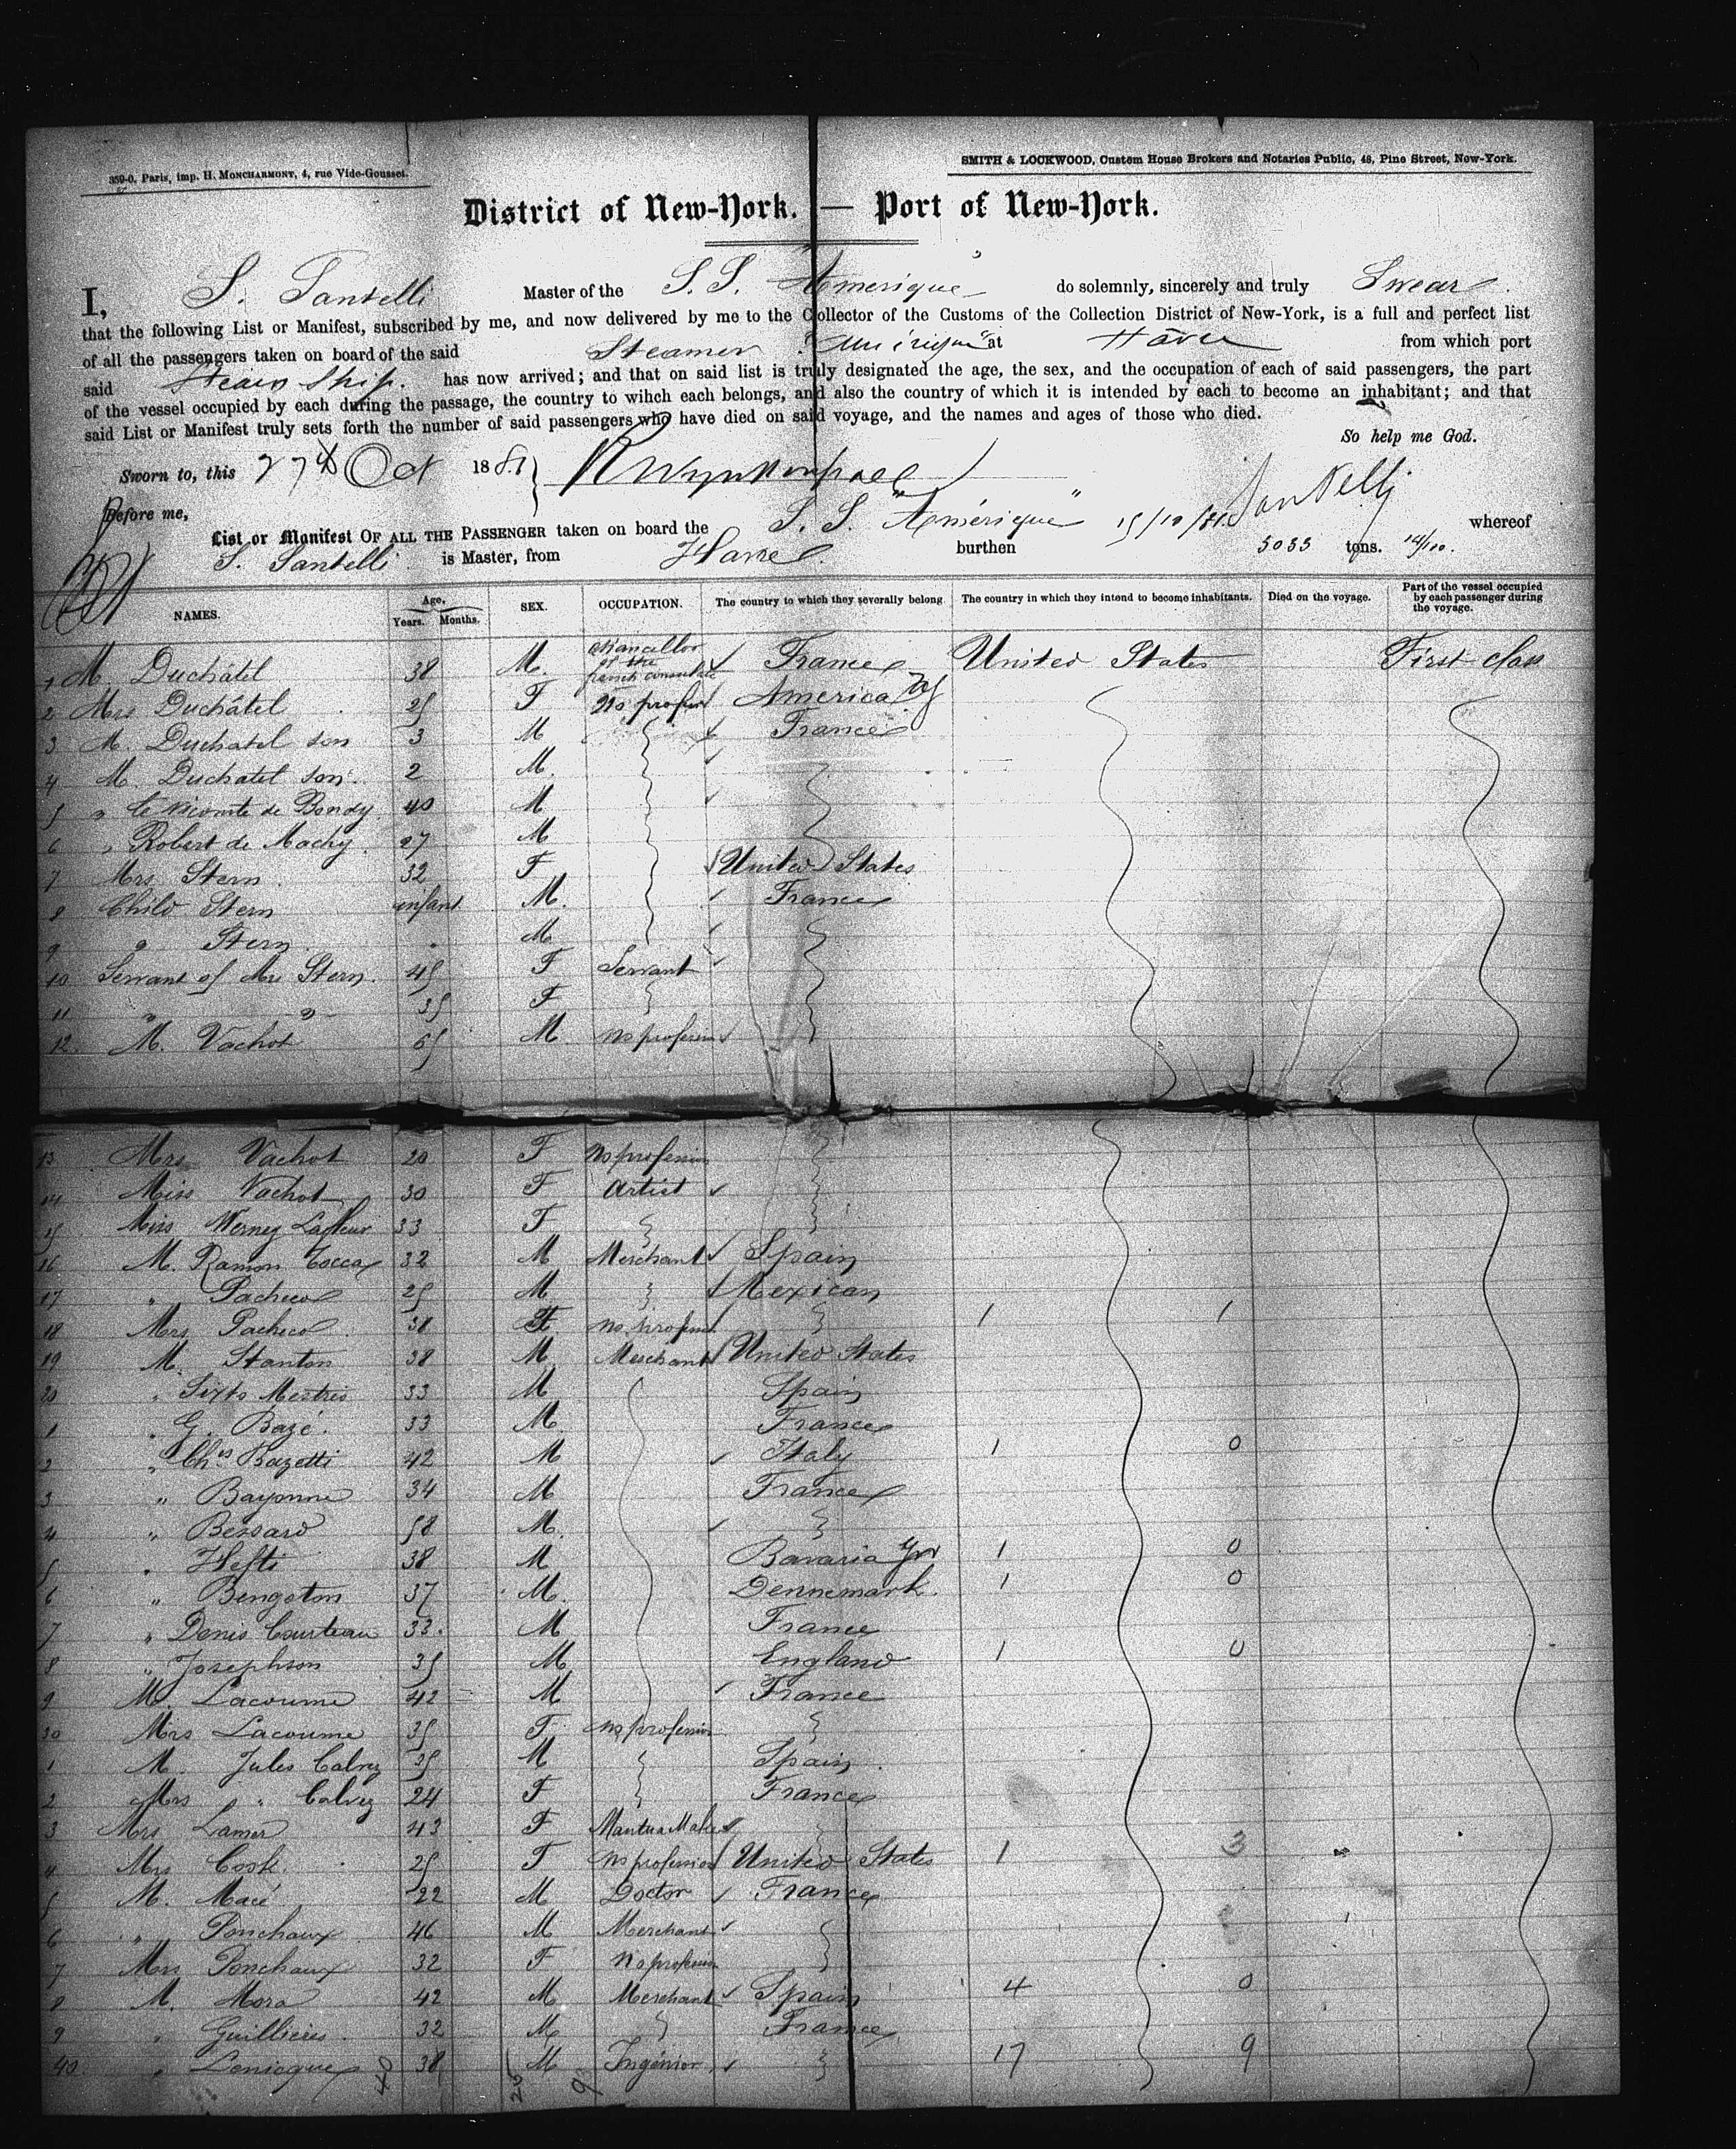 359-0. Paris, imp. H. MONCHARMONT, 4, rue Vide-Gousset.
SMITH & LOCKWOOD, Custom House Brokers and Notaries Public, 48, Pine Street, New-York.
District of New-York. — Port of New-York.
I, S. Santelli Master of the S.S. "Amerique" do solemnly, sincerely and truly Swear
that the following List or Manifest, subscribed by me, and now delivered by me to the Collector of the Customs of the Collection District of New-York, is a full and perfect list
of all the passengers taken on board of the said Steamer "Amérique" at Havre from which port
said Steam Ship. has now arrived; and that on said list is truly designated the age, the sex, and the occupation of each of said passengers, the part
of the vessel occupied by each during the passage, the country to wihch each belongs, and also the country of which it is intended by each to become an inhabitant; and that
said List or Manifest truly sets forth the number of said passengers who have died on said voyage, and the names and ages of those who died.
So help me God.
Sworn to, this 27th Oct 1881
Before me,
Santelli
List or Manifest OF ALL THE PASSENGER taken on board the S.S. "Amérique" 15/10/81 whereof
S. Santelli is Master, from Havre burthen 3033 tons. 14/100.
NAMES. Age, Years. Months. SEX. OCCUPATION. The country to which they severally belong. The country in which they intend to become inhabitants. Died on the voyage. Part of the vessel occupied by each passenger during the voyage.
1 M. Duchâtel 38 M. Chancellor of the french consulate France United States First class
2 Mrs Duchâtel 25 F No profes America
3 M. Duchatel son 3 M France
4 M. Duchatel son 2 M.
5 " le Vicomte de Bondy 40 M
6 " Robert de Machy 27 M
7 Mrs Stern 32 F United States
8 Child Stern infant M. France
9 " Stern M
10 Servant of Mrs Stern. 45 F Servant
11 " " 35 F
12. M. Vachot 65 M no profession
13 Mrs Vachot 20 F No profession
14 Miss Vachot 30 F Artist
15 Miss Werney Lafleur 33 F
16 M. Ramon Tocca 32 M Merchant Spain
17 " Pacheco 25 M Mexican
18 Mrs Pacheco 38 F no profes 1 1
19 M. Stanton 38 M Merchant United States
20 " Sixto Mestres 33 M Spain
1 " G. Bazé. 33 M. France
2 " Chs Bazetti 42 M Italy 1 0
3 " Bayonne 34 M France
4 " Bessard 58 M.
5 " Hefti 38 M Bavaria 1 0
6 " Bengston 37 M. Dennemark 1 0
7 " Denis Courteau 33. M France
8 " Josephson 35 M England 1 0
9 M. Lacoume 42 M France
30 Mrs Lacoume 35 F no profession
1 M. Jules Calvez 35 M Spain
2 Mrs " Calvez 24 F France
3 Mrs Lamer 43 F Mantua Maker
4 Mrs Cook. 25 F no profession United States 1 3
5 M. Macé 22 M Doctor France
6 " Ponchaux 46 M Merchant
7 Mrs Ponchaux 32 F No profession
8 M. Mora 42 M Merchant Spain 4 0
9 " Guillieres 32 M France
40. " Lenicque 38 M Ingénior 17 9
40 25 9